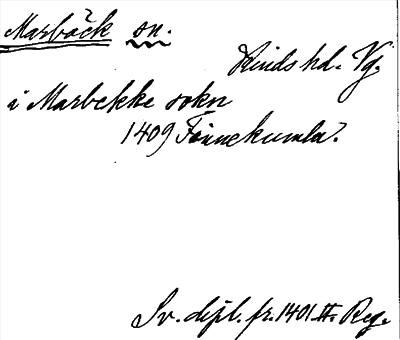 Marbäck sn.
Kinds hd. Vg.
i Marbekke sokn
1409 Finnekumla.
Sv. dipl. fr. 1401 II. Reg.